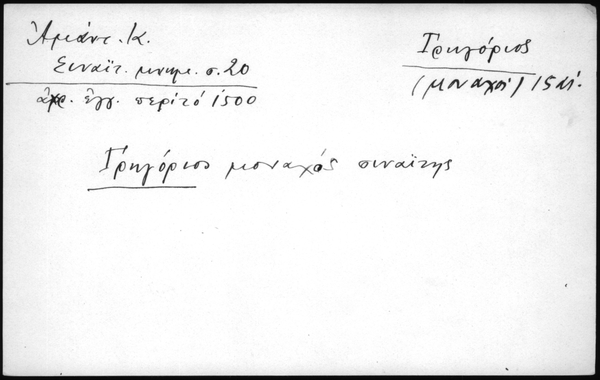 Ἀμάντ. Κ.
Σιναϊτ. μνημ. σ. 20
ἀχρ. ἔγγ. περὶ τὸ 1500
Γρηγόριος
(μοναχοί) 15 αἰ.
Γρηγόριος μοναχός σιναΐτης